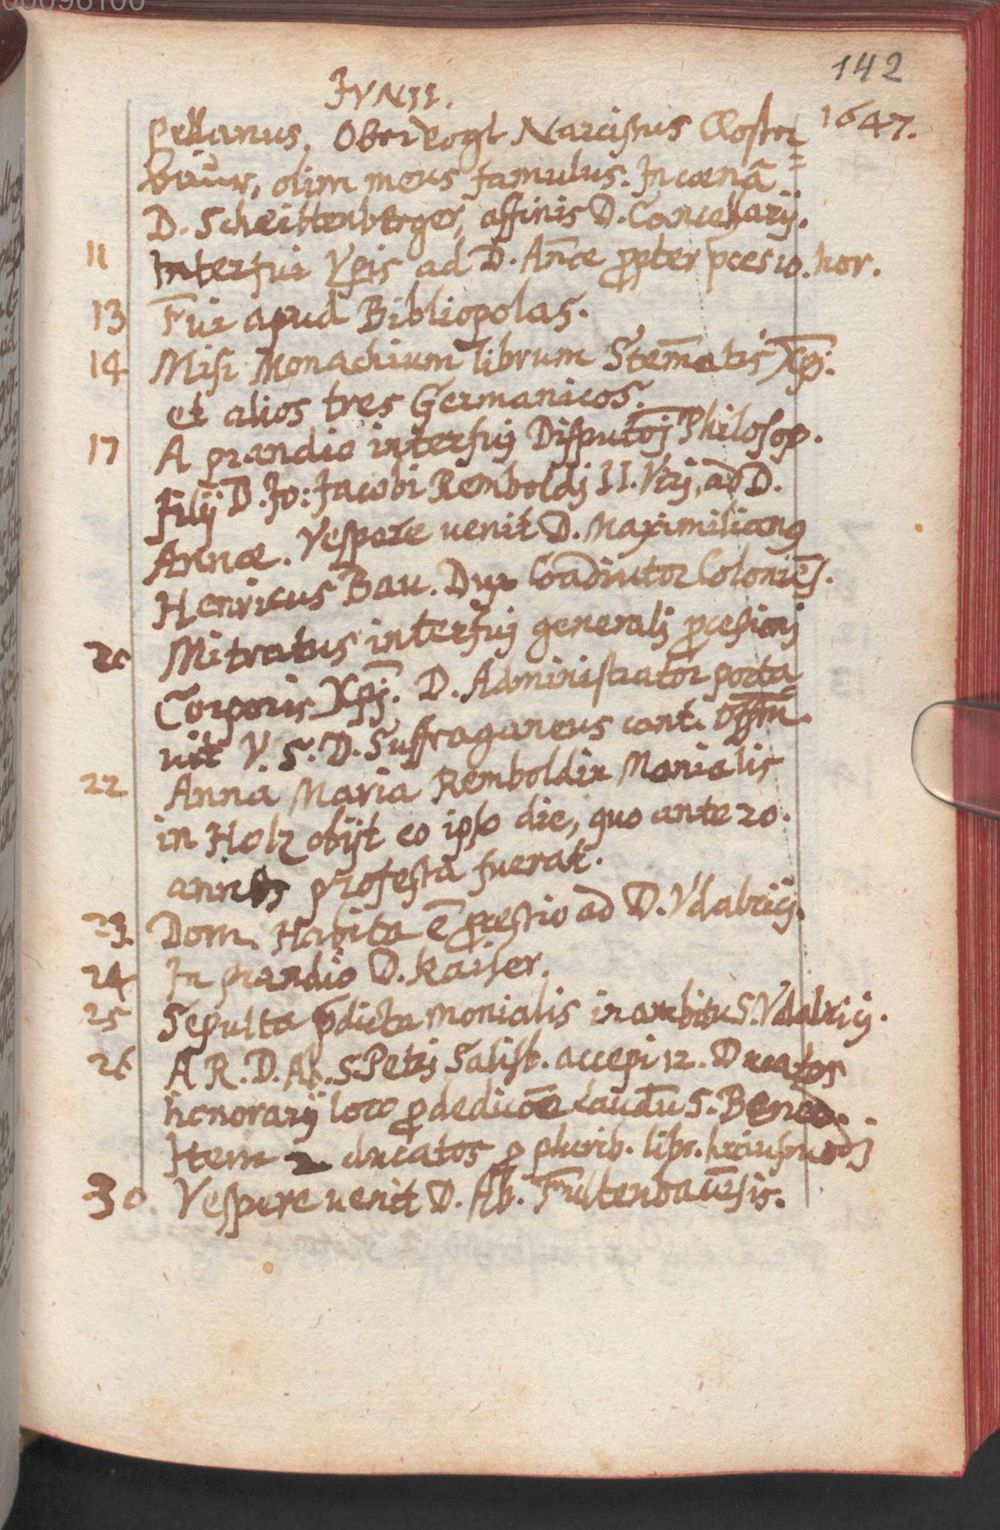 142
IVNII.
1647.
pellanus. Obervogt Narcissus Closter=
baur, olim meus famulus. In cœnã
D. Scheittenberger, affinis D. Cancellarij.
11 Interfui Vp̄is ad D. Añæ p̱pter p̄ces 10. hor.
13 Fui apud Bibliopolas.
14 Misi Monachium librum Stem̄atis Xp̄i:
et alios tres Germanicos.
17 A prandio interfuj Disputõj Philosop.
filij D. Jo: Jacobi Remboldj II. Viri, ad D.
Annæ. Vespere uenit D. Maximilianꝰ
Henricus Bau. Dux Coadiutor Coloniẽs.
20 Mitratus interfuj generalj p̱cesionj
Corporis Xp̄j. D. Administrator porta
uit V. S. D. Suffraganeus cant. Offm̄.
22 Anna Maria Remboldin Monialis
in Holz obijt eo ipso die, quo ante 20.
annos professa fuerat.
23. Dom. Habita ẽ p̱cessio ad D. Vdalricj.
24 In prandio D. Kaiser.
25 Sepulta p̄dicta monialis in ambitu S. Vdalricij.
26 A R. D. Ab. S. Petrj Salisb. accepi 12. Ducatos
honorarij loco p̱ dedicõe laudũ S. Bened.
Item 2 ducatos p̱ plurib. libr. huiusmodj
30 Vespere uenit D. Ab. Fultenbac̄ensis.